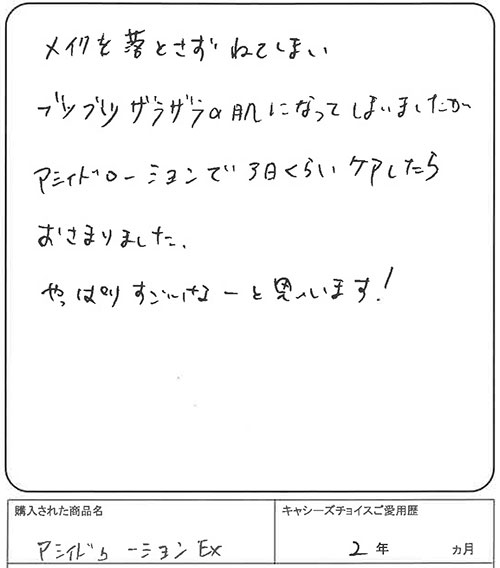 メイクを落とさずねてしまい
ブツブツザラザラの肌になってしまいましたが
アミノイドローションで3日くらいケアしたら
おさまりました。
やっぱりすごいなーと思います!
購入された商品名
キャシーズチョイスご愛用歴
アミノイドローションEX
2年
ヵ月